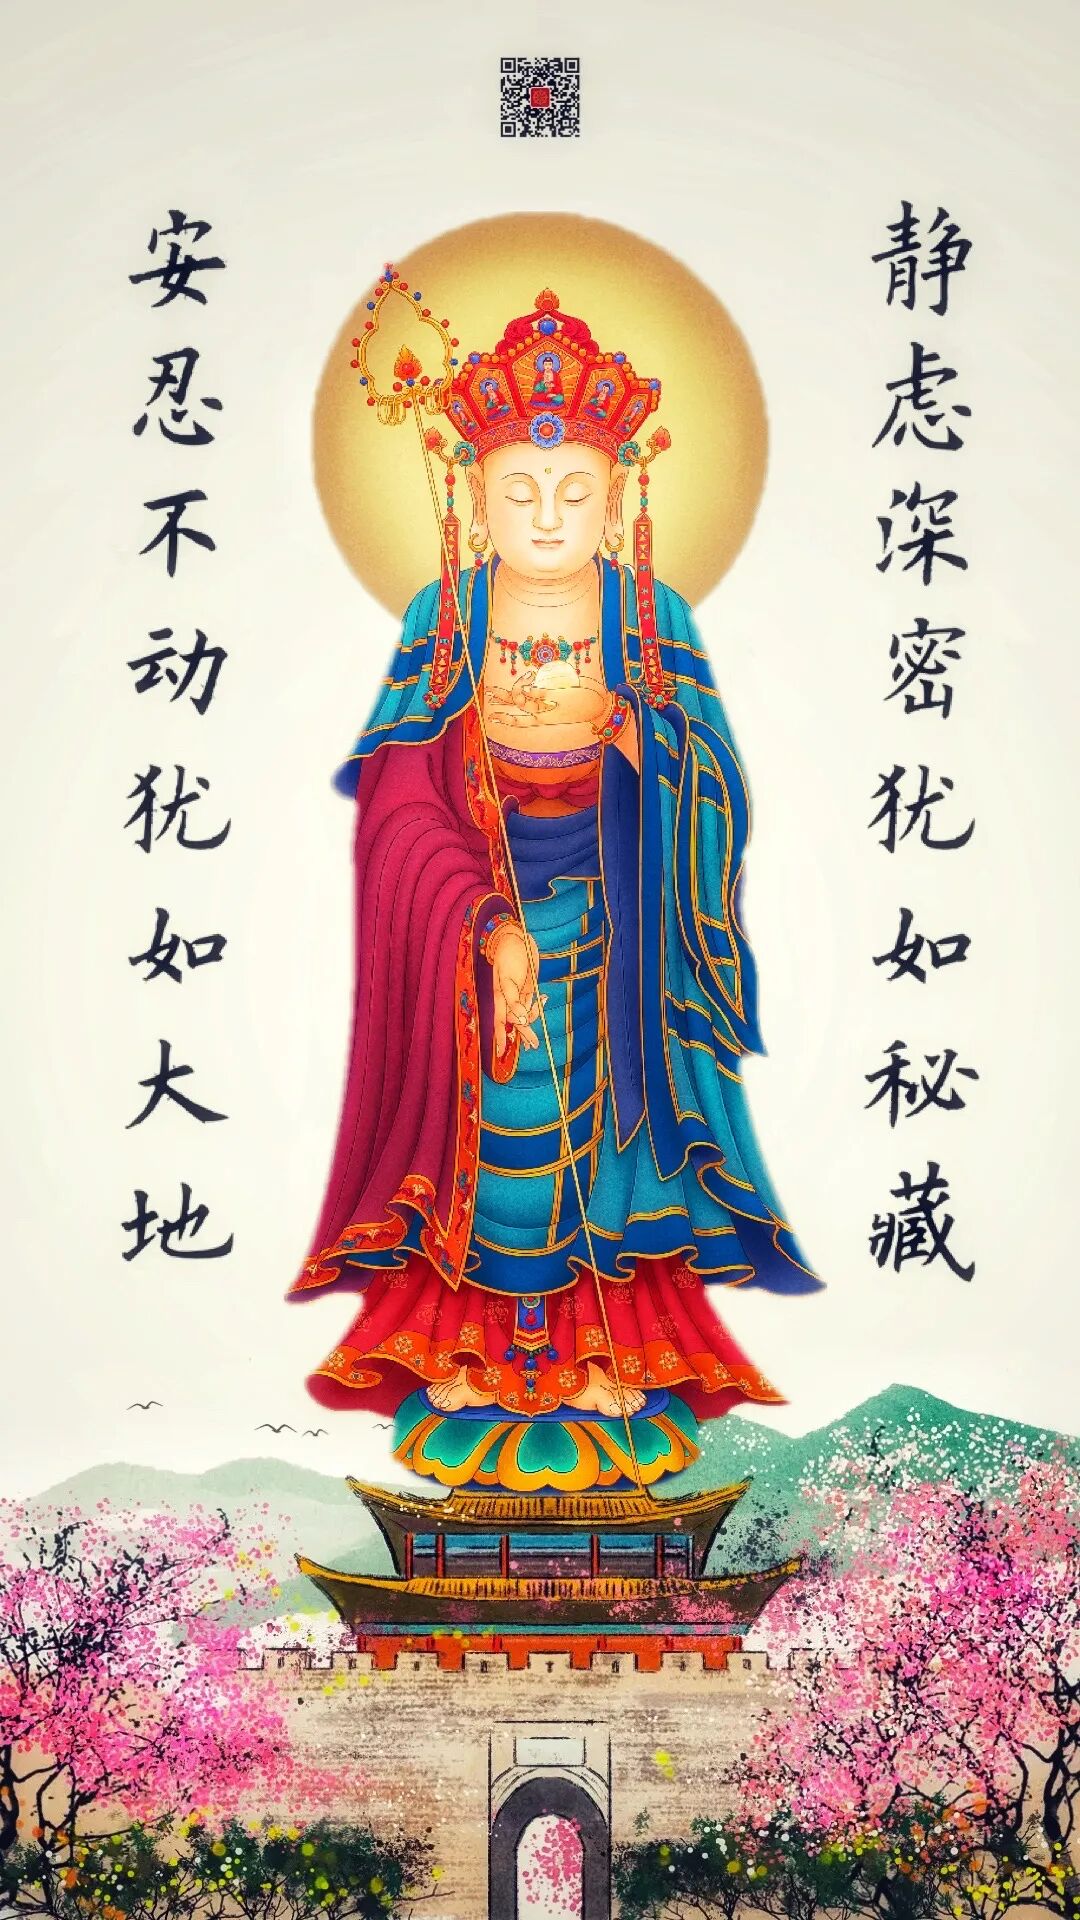 静虑深密犹如秘藏
安忍不动犹如大地